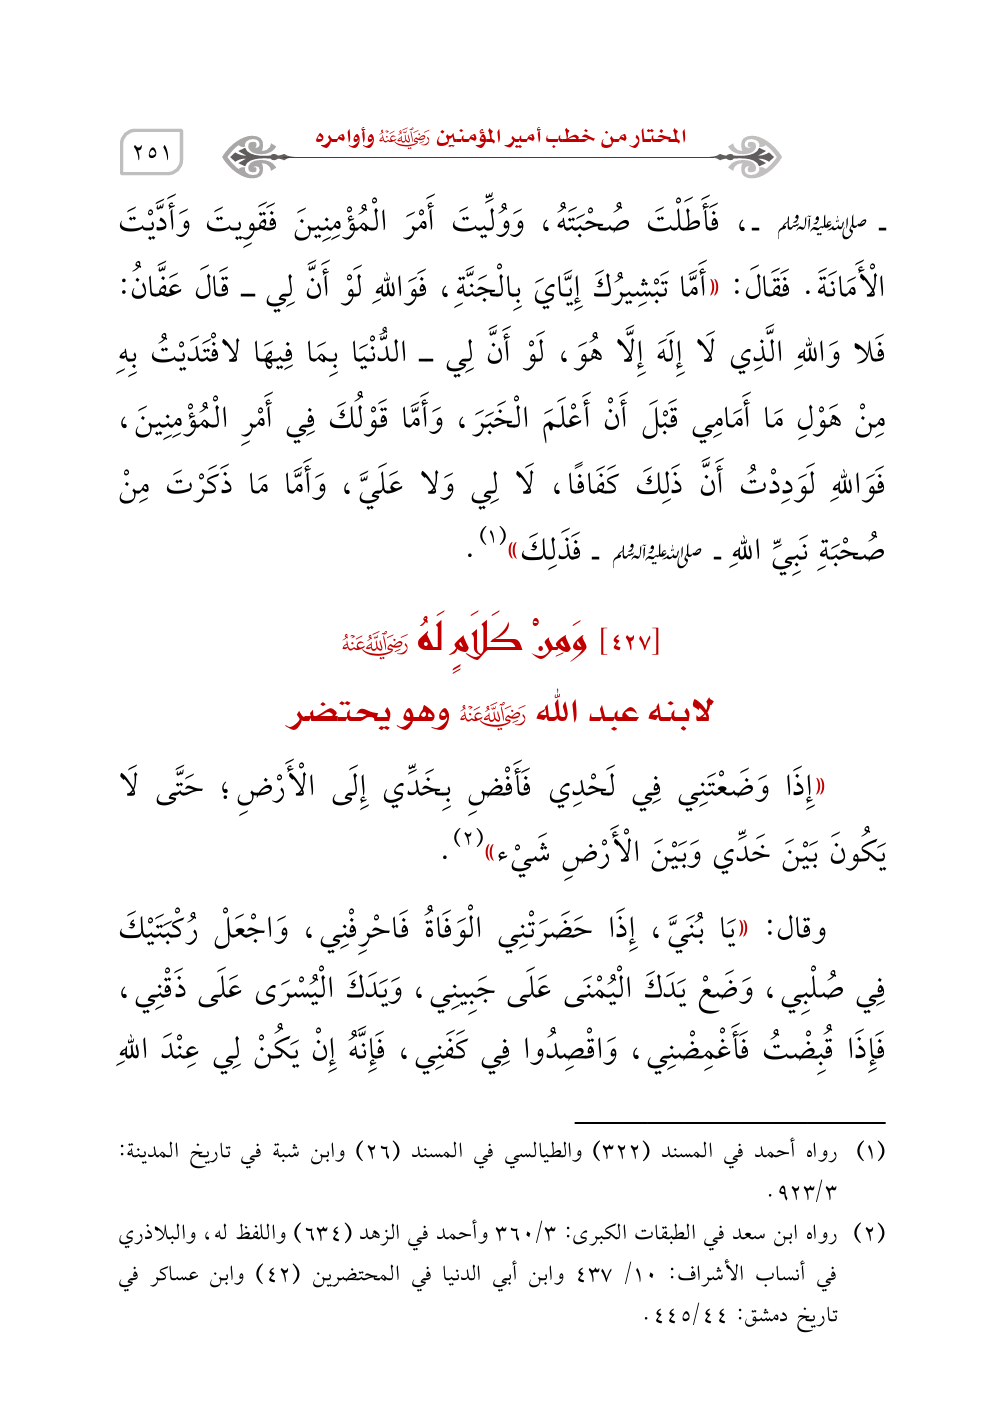 المختار من خطب أمير المؤمنين رَضِيَ اللَّهُ عَنْهُ وأوامره
٢٥١
ـ صلى الله عليه وآله وسلم ـ، فَأَطَلْتَ صُحْبَتَهُ، وَوُلِّيتَ أَمْرَ الْمُؤْمِنِينَ فَقَوِيتَ وَأَدَّيْتَ
الْأَمَانَةَ. فَقَالَ: «أَمَّا تَبْشِيرُكَ إِيَّايَ بِالْجَنَّةِ، فَوَاللهِ لَوْ أَنَّ لِي ــ قَالَ عَفَّانُ:
فَلا وَاللهِ الَّذِي لَا إِلَهَ إِلَّا هُوَ، لَوْ أَنَّ لِي ــ الدُّنْيَا بِمَا فِيهَا لافْتَدَيْتُ بِهِ
مِنْ هَوْلِ مَا أَمَامِي قَبْلَ أَنْ أَعْلَمَ الْخَبَرَ، وَأَمَّا قَوْلُكَ فِي أَمْرِ الْمُؤْمِنِينَ،
فَوَاللهِ لَوَدِدْتُ أَنَّ ذَلِكَ كَفَافًا، لَا لِي وَلا عَلَيَّ، وَأَمَّا مَا ذَكَرْتَ مِنْ
صُحْبَةِ نَبِيِّ اللهِ ـ صلى الله عليه وآله وسلم ـ فَذَلِكَ»(١).
[٤٢٧] وَمِنْ كَلَامٍ لَهُ رَضِيَ اللَّهُ عَنْهُ
لابنه عبد الله رَضِيَ اللَّهُ عَنْهُ وهو يحتضر
«إِذَا وَضَعْتَنِي فِي لَحْدِي فَأَفْضِ بِخَدِّي إِلَى الْأَرْضِ؛ حَتَّى لَا
يَكُونَ بَيْنَ خَدِّي وَبَيْنَ الْأَرْضِ شَيْء»(٢).
وقال: «يَا بُنَيَّ، إِذَا حَضَرَتْنِي الْوَفَاةُ فَاحْرِفْنِي، وَاجْعَلْ رُكْبَتَيْكَ
فِي صُلْبِي، وَضَعْ يَدَكَ الْيُمْنَى عَلَى جَبِينِي، وَيَدَكَ الْيُسْرَى عَلَى ذَقْنِي،
فَإِذَا قُبِضْتُ فَأَغْمِضْنِي، وَاقْصِدُوا فِي كَفَنِي، فَإِنَّهُ إِنْ يَكُنْ لِي عِنْدَ اللهِ
(١) رواه أحمد في المسند (٣٢٢) والطيالسي في المسند (٢٦) وابن شبة في تاريخ المدينة:
٩٢٣/٣.
(٢) رواه ابن سعد في الطبقات الكبرى: ٣٦٠/٣ وأحمد في الزهد (٦٣٤) واللفظ له، والبلاذري
في أنساب الأشراف: ١٠/ ٤٣٧ وابن أبي الدنيا في المحتضرين (٤٢) وابن عساكر في
تاريخ دمشق: ٤٤٥/٤٤.